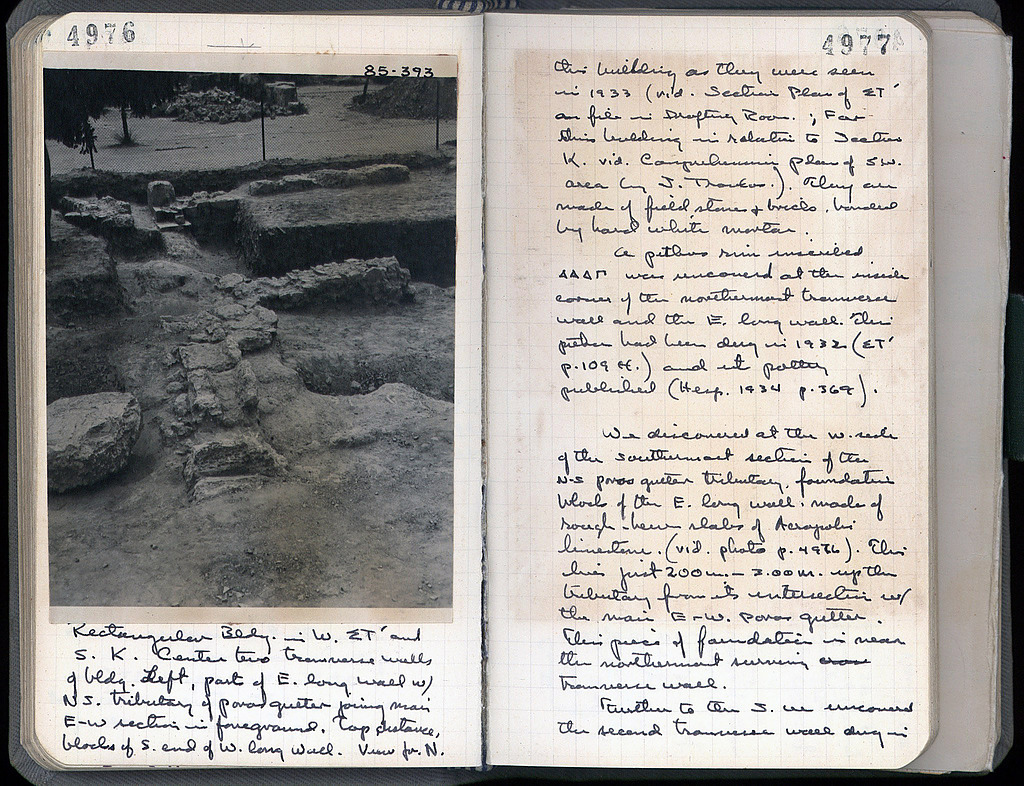 4976
85-393
Rectangular Bldg. in W. ΣΤ' and
S. K. Center two transverse walls
of bldg. Left, part of E. long wall w/
N-S. tributary of poros gutter joining main
E-W section in foreground. Top distance,
blocks of S. end of W. long wall. View fr. N.
4977
this building as they were seen
in 1933 (vid. Section Plan of ΣΤ'
on file in Drafting Room. ; For
this building in relation to Section
K. vid. Comprehensive plan of S.W.
area by J. Travlos.). They are
made of field stones & bricks, bonded
by hard white mortar.
A pithos rim inscribed
ΔΔΔΓ was uncovered at the inside
corner of the northernmost transverse
wall and the E. long wall. This
pithos had been dug in 1932 (ΣΤ'
p. 109 ff.) and its pottery
published (Hesp. 1934 p. 369).
We discovered at the W. side
of the southernmost section of the
N-S poros gutter tributary, foundation
blocks of the E. long wall, made of
rough-hewn slabs of Acropolis
limestone. (vid. photo p. 4976). This
lies just 2.00 m. - 3.00 m. up the
tributary from its intersection w/
the main E-W. poros gutter.
This piece of foundation is near
the northernmost surviving
transverse wall.
Further to the S. we uncovered
the second transverse wall dug in